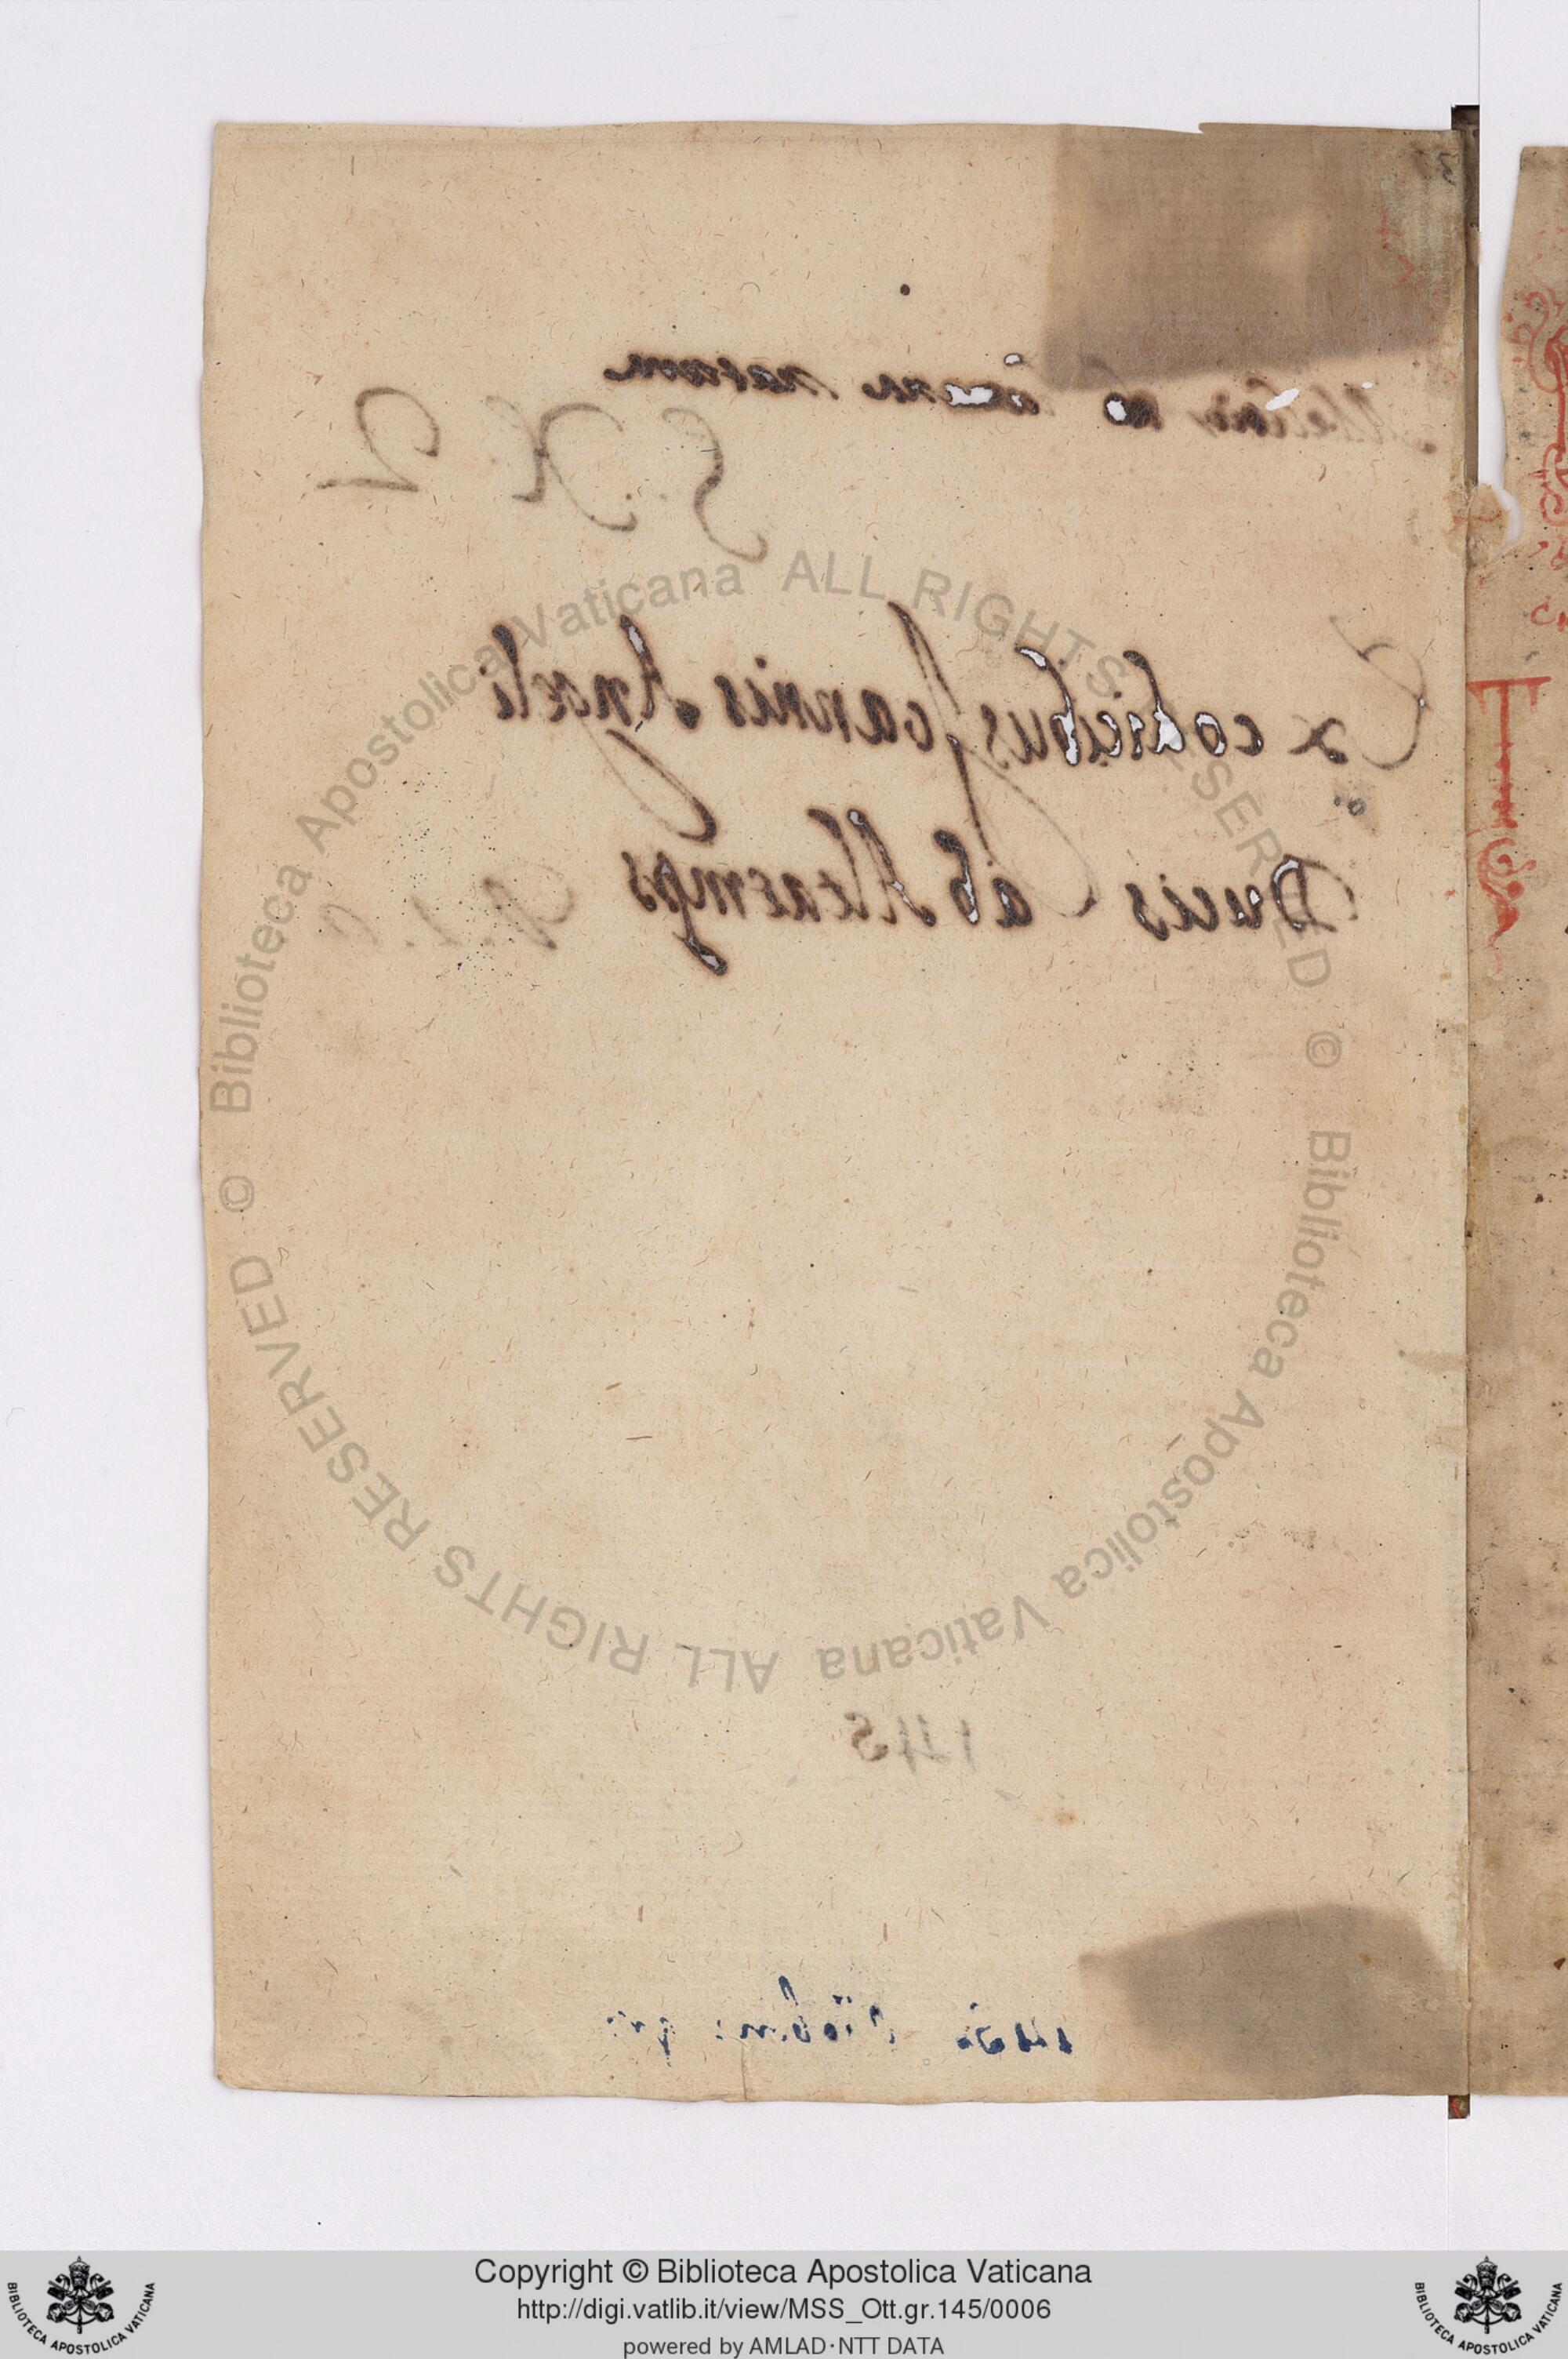 S. X. 2
Ex codicibus Joannis Angeli
Ducis ab Altaemps
145
145 Ottobon: gr:
Biblioteca Apostolica Vaticana ALL RIGHTS RESERVED ©
Biblioteca Apostolica Vaticana ALL RIGHTS RESERVED ©
Copyright © Biblioteca Apostolica Vaticana
http://digi.vatlib.it/view/MSS_Ott.gr.145/0006
powered by AMLAD·NTT DATA
BIBLIOTECA APOSTOLICA VATICANA
BIBLIOTECA APOSTOLICA VATICANA